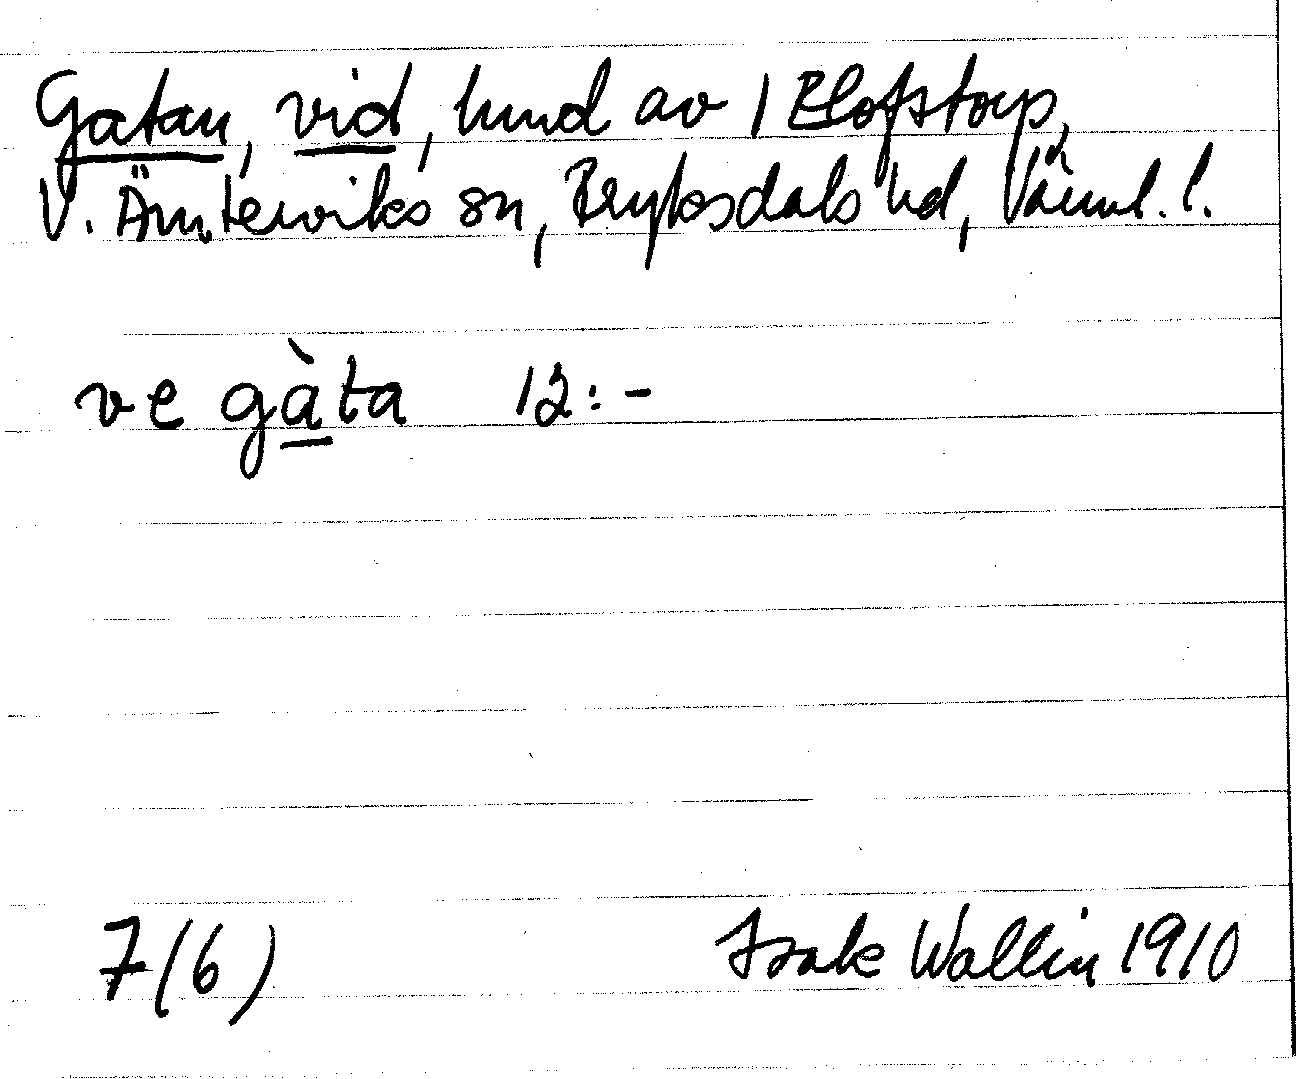 Gatan, vid, hmd av 1 Elofstorp,
V. Ämterviks sn, Fryksdals hd, Värml. l.
ve gàta 12:-
7(6) Isak Wallin 1910